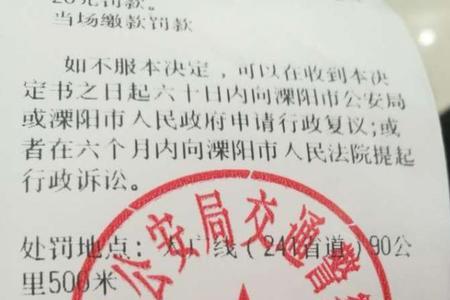 20元罚款。
当场缴款罚款
如不服本决定，可以在收到本决
定书之日起六十日内向溧阳市公安局
或溧阳市人民政府申请行政复议;或
者在六个月内向溧阳市人民法院提起
行政诉讼。
处罚地点: 线(241省道)90公
里500米
公安局交通警